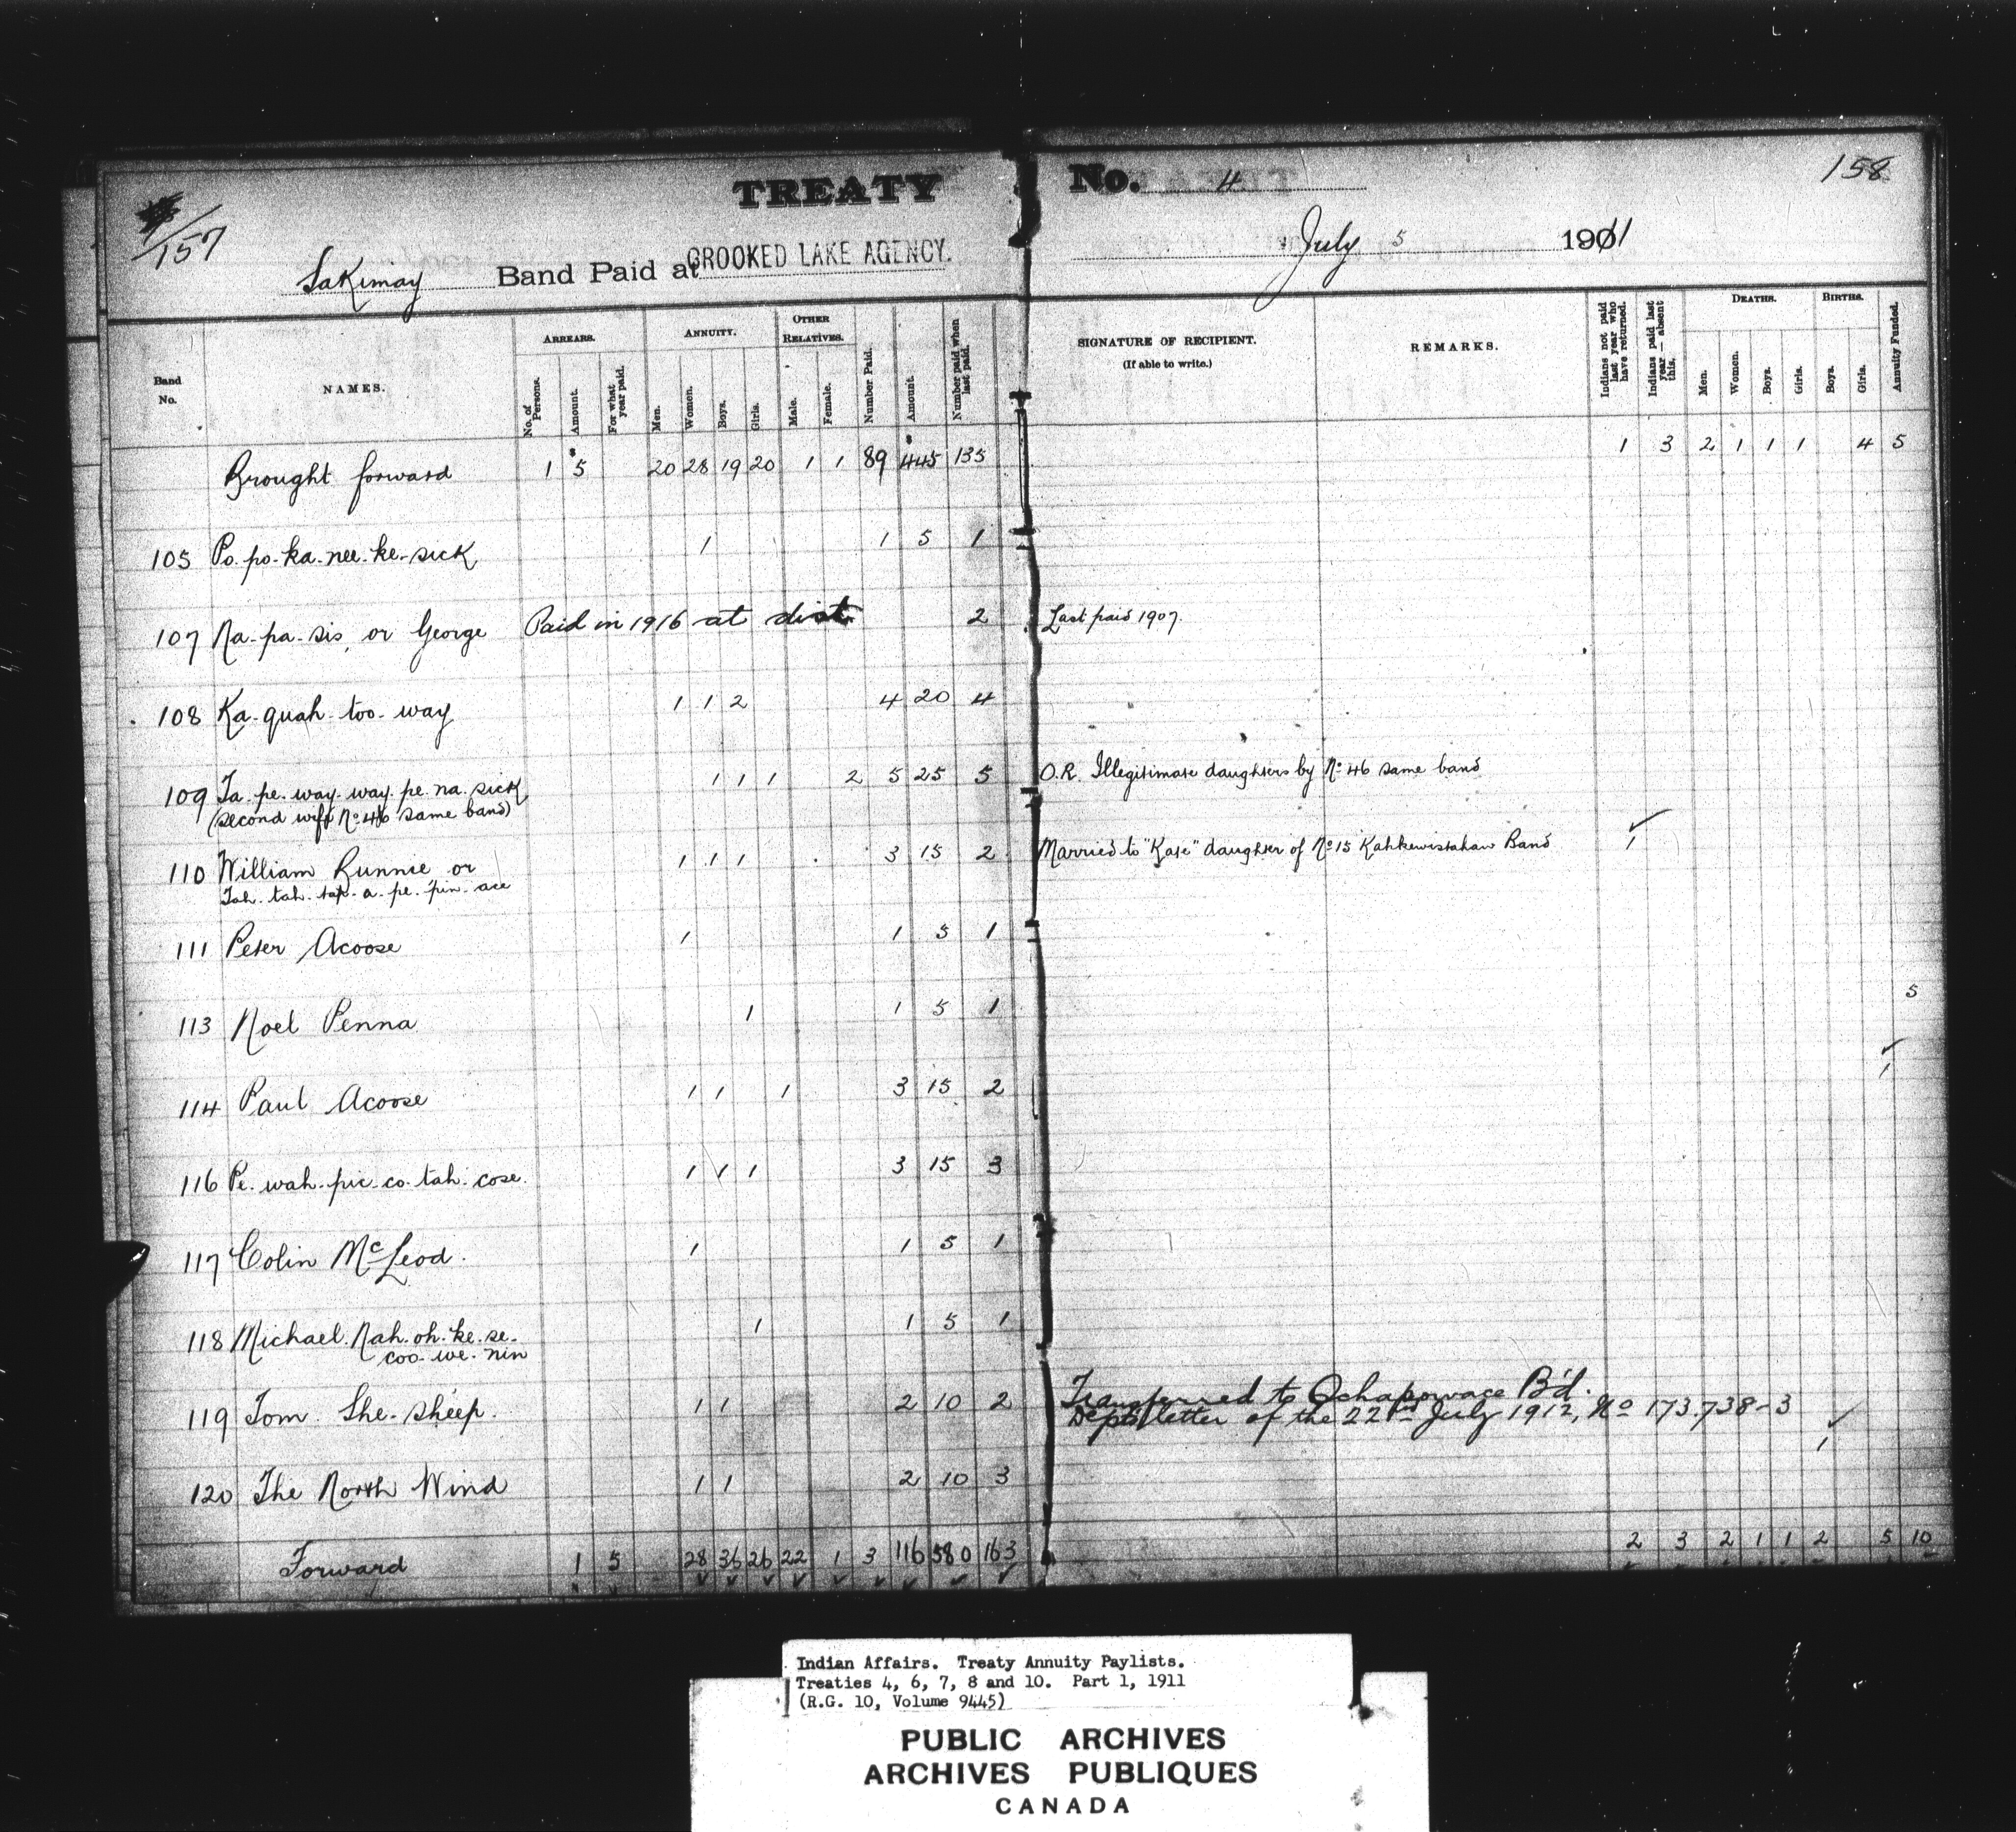 157
TREATY No. 4
158
Sakimay Band Paid at CROOKED LAKE AGENCY. July 5 1911
Band No.
NAMES.
ARREARS.
No. of Persons.
Amount.
For what year paid.
ANNUITY.
Men.
Women.
Boys.
Girls.
OTHER RELATIVES.
Male.
Female.
Number Paid.
Amount.
Number paid when last paid.
SIGNATURE OF RECIPIENT.
(If able to write.)
REMARKS.
Indians not paid last year who have returned.
Indians paid last year — absent this.
DEATHS.
Men.
Women.
Boys.
Girls.
BIRTHS.
Boys.
Girls.
Annuity Funded.
Brought forward 1 $5 20 28 19 20 1 1 89 $445 135 1 3 2 1 1 1 4 5
105 Po-po-ka-nee-ke-sick 1 1 5 1
107 Na-pa-sis, or George Paid in 1916 at dist 2 Last paid 1907.
108 Ka-quah-too-way 1 1 2 4 20 4
109 Ta-pe-way-way-pe-na-sick 1 1 1 2 5 25 5 O.R. Illegitimate daughters by No 46 same band
(second wife No 46 same band)
110 William Runnie or 1 1 1 3 15 2 Married to "Kate" daughter of No 15 Kahkewistahaw Band 1
Tah-tah-tap-a-pe-pin-ace
111 Peter Acoose 1 1 5 1
113 Noel Penna 1 1 5 1 5
114 Paul Acoose 1 1 1 3 15 2 1
116 Pe-wah-pic-co-tah-cose 1 1 1 3 15 3
117 Colin McLeod. 1 1 5 1
118 Michael Nah-oh-ke-se- 1 1 5 1
coo-we-nin
119 Tom She-sheep. 1 1 2 10 2 Transferred to Ochapowace B'd.
Dept letter of the 22nd July 1912, No 173.738-3
120 The North Wind 1 1 2 10 3 1
Forward 1 5 28 36 26 22 1 3 116 580 163 2 3 2 1 1 2 5 10
Indian Affairs. Treaty Annuity Paylists.
Treaties 4, 6, 7, 8 and 10. Part 1, 1911
(R.G. 10, Volume 9445)
PUBLIC ARCHIVES
ARCHIVES PUBLIQUES
CANADA